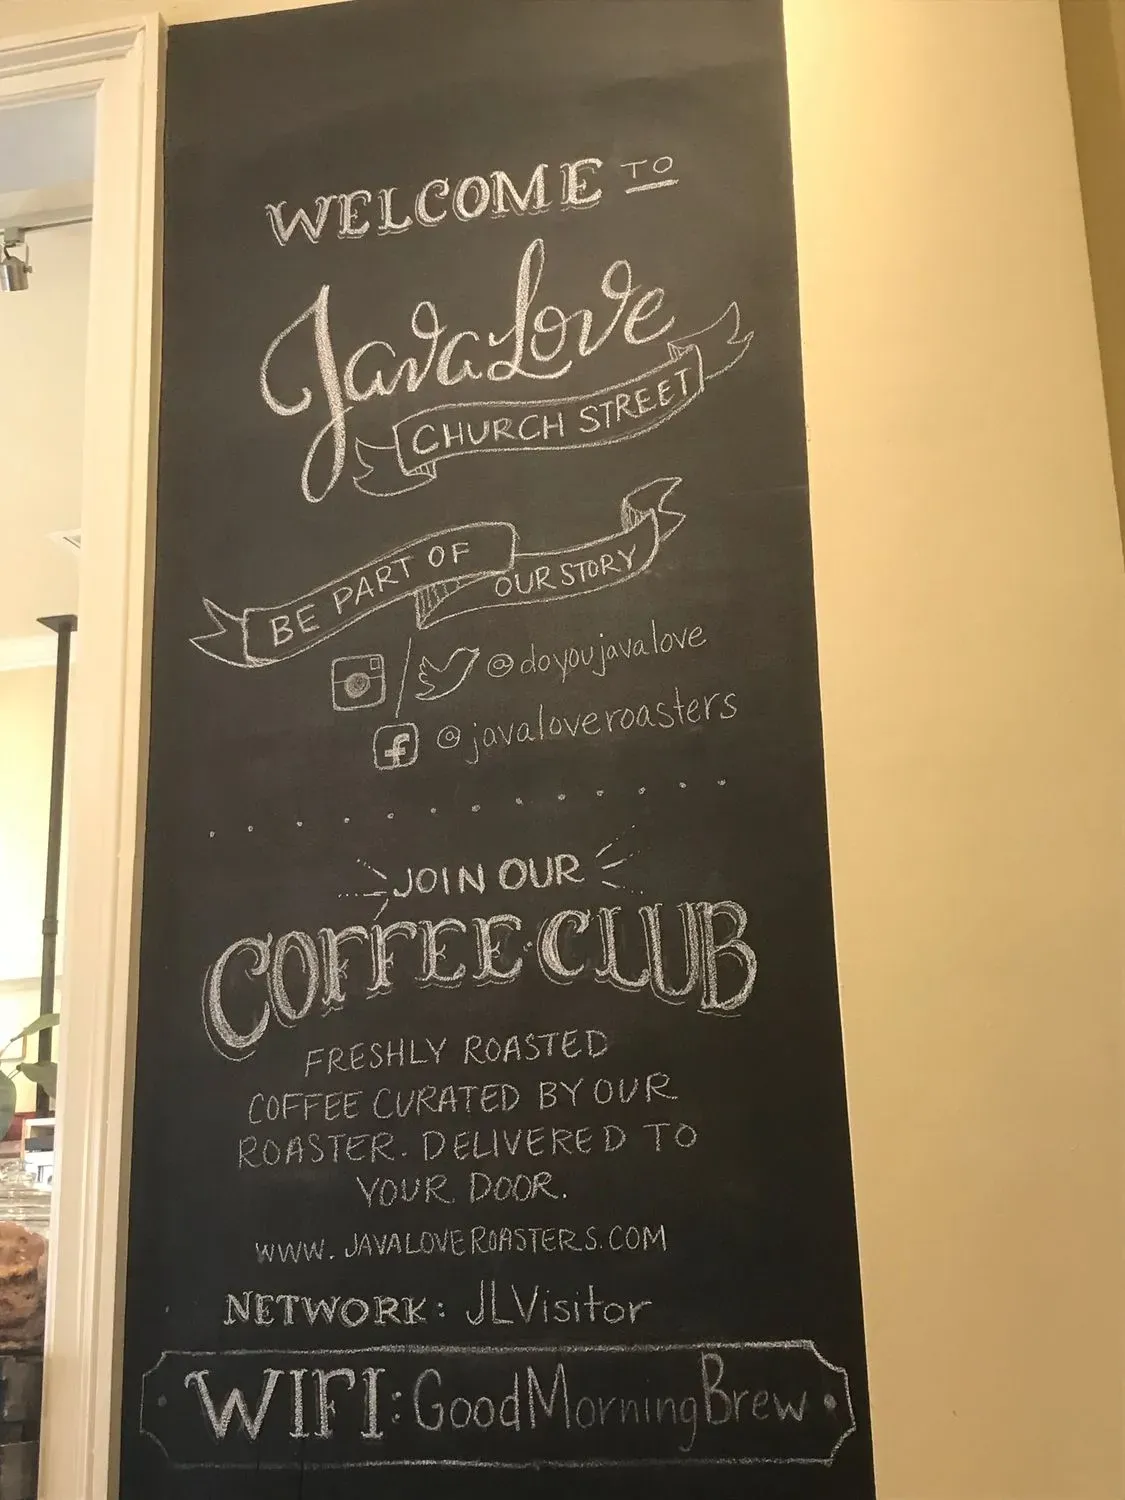 WELCOME TO
JavaLove
CHURCH STREET
BE PART OF OUR STORY
@doyoujavalove
@javaloveroasters
JOIN OUR
COFFEE·CLUB
FRESHLY ROASTED
COFFEE CURATED BY OUR
ROASTER. DELIVERED TO
YOUR DOOR.
WWW.JAVALOVEROASTERS.COM
NETWORK: JLVisitor
WIFI: GoodMorningBrew